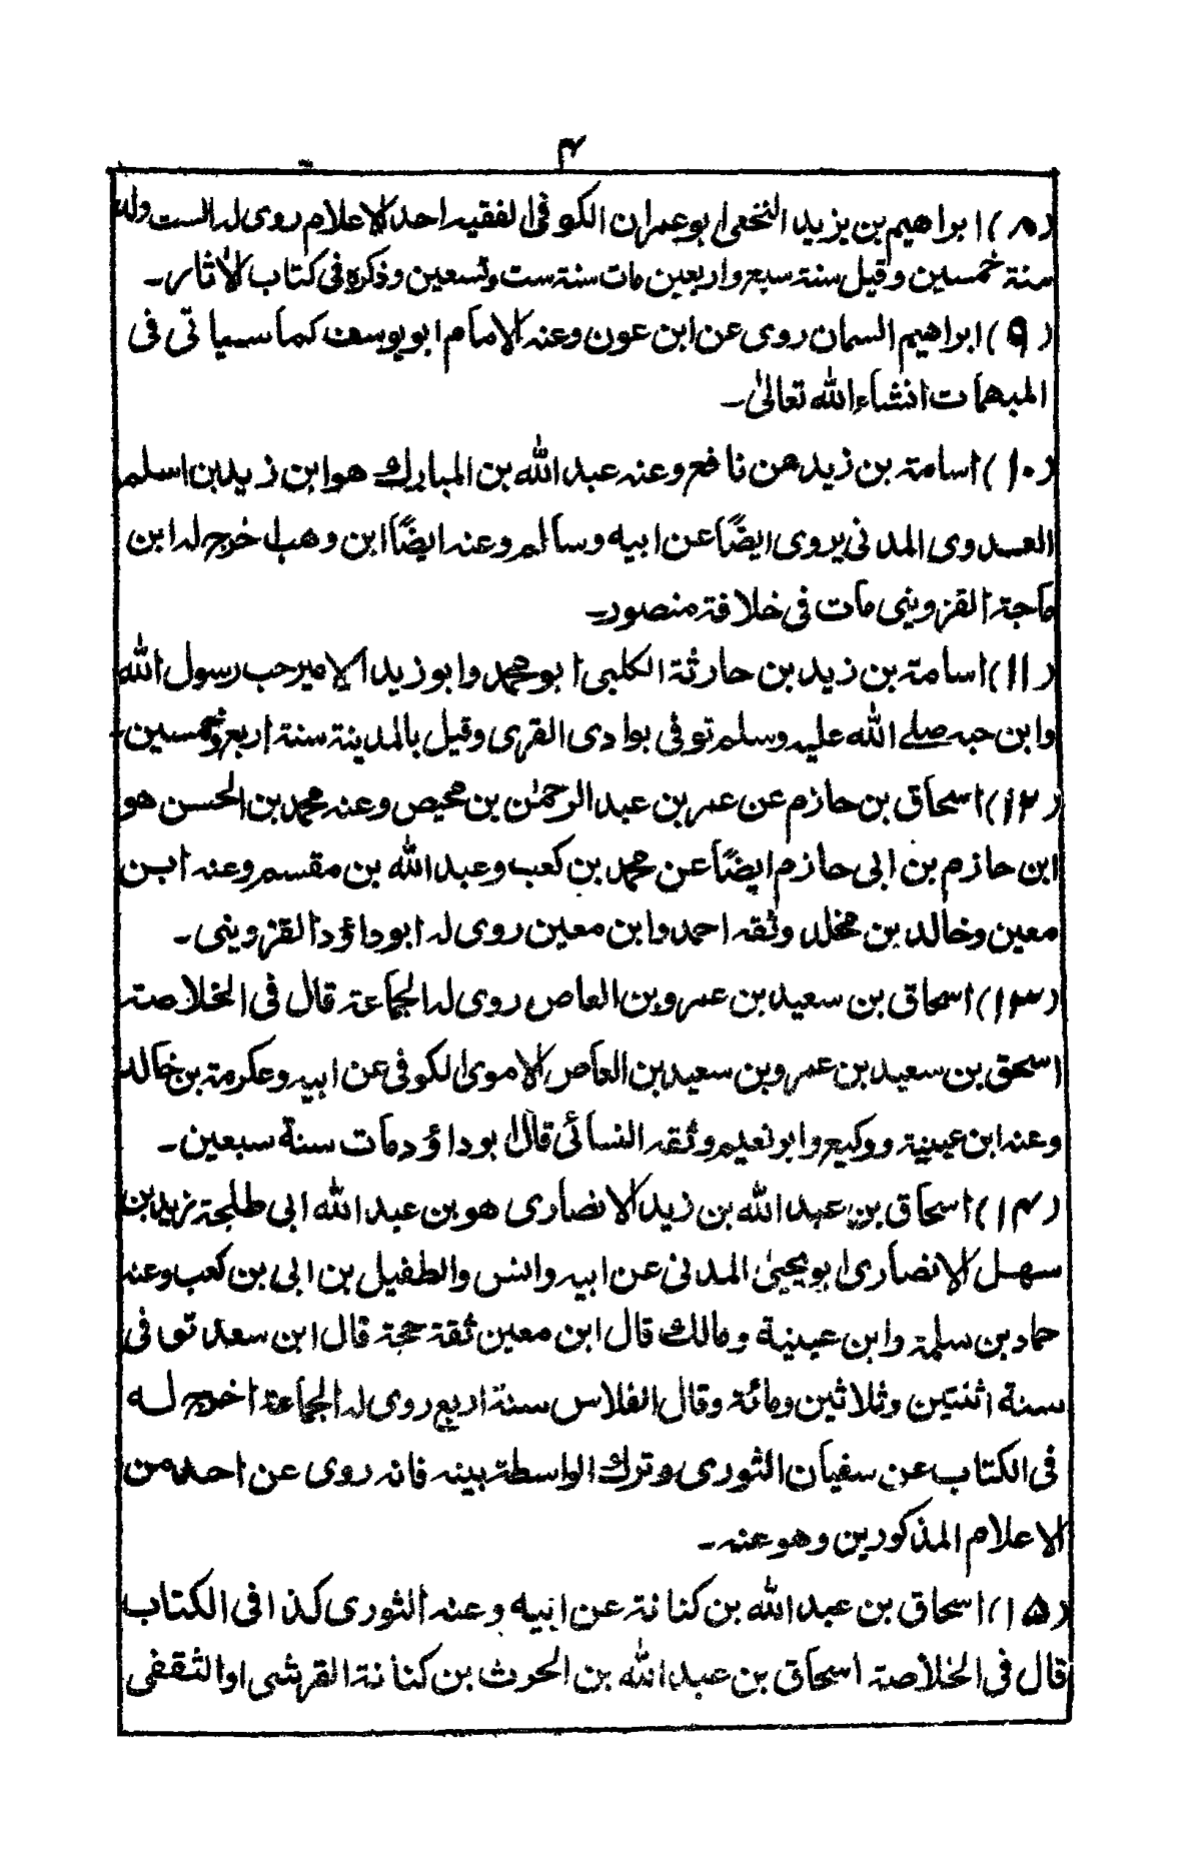 ۴
(۸) ابراهيم بن يزيد النخعى ابوعمران الكوفى الفقيه احد الاعلام روى له الست ولد
سنة خمسين وقيل سنة سبع واربعين مات سنة ست وتسعين وذكره فى كتاب الاثار۔
(۹) ابراهيم السمان روى عن ابن عون وعنه الامام ابويوسف كما سياتى فى
المبهمات انشاء الله تعالىٰ۔
(۱۰) اسامة بن زيد عن نافع وعنه عبد الله بن المبارك هو ابن زيد بن اسلم
العدوى المدنى يروى ايضًا عن ابيه وسالم وعنه ايضًا ابن وهب خرج له ابن
ماجة القزوينى مات فى خلافة منصور۔
(۱۱) اسامة بن زيد بن حارثة الكلبى ابو محمد وابو زيد الامير حب رسول الله
وابن حبه صلے الله عليه وسلم توفى بوادى القرى وقيل بالمدينة سنة اربع وخمسين۔
(۱۲) اسحاق بن حازم عن عمر بن عبد الرحمٰن بن محيص وعنه محمد بن الحسن هو
ابن حازم بن ابى حازم ايضًا عن محمد بن كعب وعبد الله بن مقسم وعنه ابن
معين وخالد بن مخلد وثقه احمد وابن معين روى له ابوداؤد القزوينى۔
(۱۳) اسحاق بن سعيد بن عمرو بن العاص روى له الجماعة قال فى الخلاصة
اسحق بن سعيد بن عمرو بن سعيد بن العاص الاموى الكوفى عن ابيه وعكرمة بن خالد
وعنه ابن عيينة ووكيع وابو نعيم وثقه النسائى قال ابوداؤد مات سنة سبعين۔
(۱۴) اسحاق بن عبد الله بن زيد الانصارى هو بن عبد الله ابى طلحة زيد بن
سهل الانصارى ابو يحيىٰ المدنى عن ابيه وانس والطفيل بن ابى بن كعب وعنه
حماد بن سلمة وابن عيينة ومالك قال ابن معين ثقة حجة قال ابن سعد توفى
سنة اثنتين وثلاثين ومائة وقال الفلاس سنة اربع روى له الجماعة اخرج له
فى الكتاب عن سفيان الثورى وترك الواسطة بينه فانه روى عن احد من
الاعلام المذكورين وهو عنه۔
(۱۵) اسحاق بن عبد الله بن كنانة عن ابيه وعنه الثورى كذا فى الكتاب
قال فى الخلاصة اسحاق بن عبد الله بن الحرث بن كنانة القرشى او الثقفى